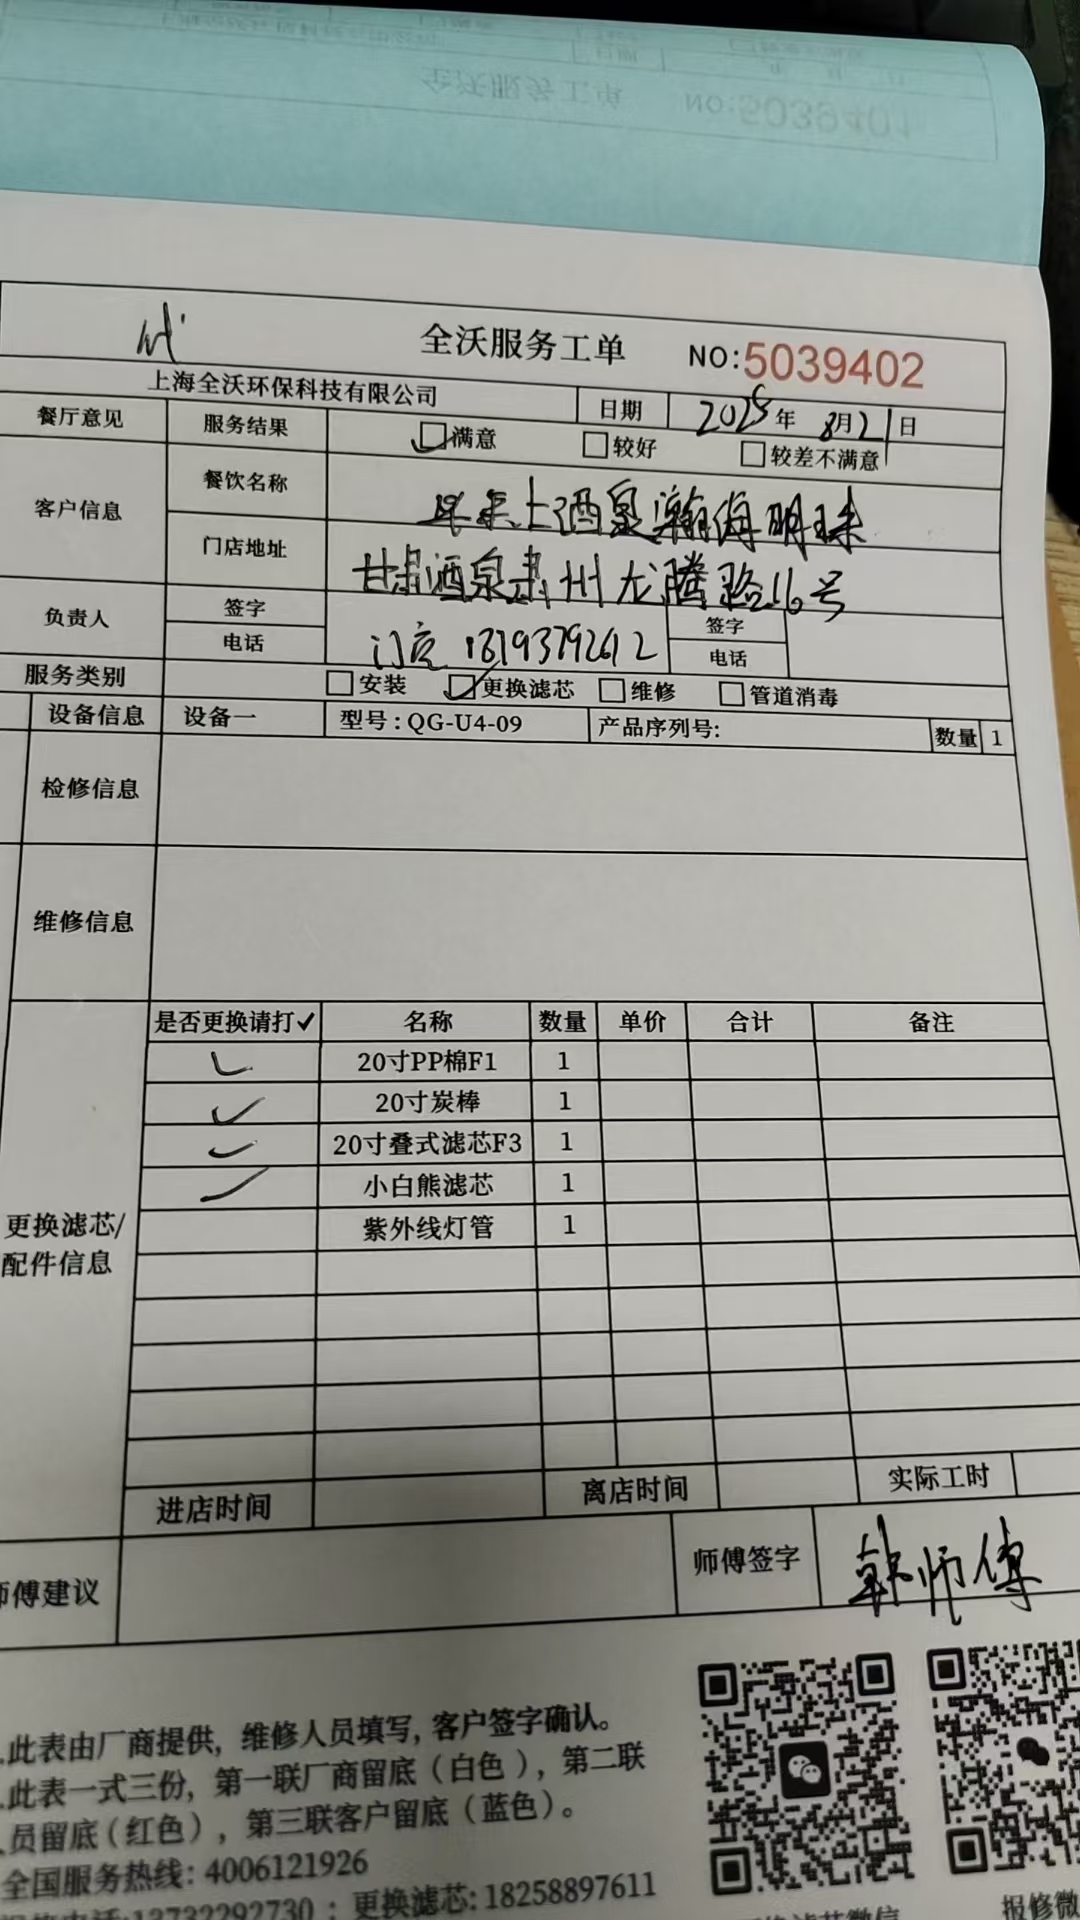 全沃服务工单 NO:5039402
上海全沃环保科技有限公司 日期 2025年8月21日
餐厅意见 服务结果 满意 较好 较差不满意
客户信息 餐饮名称 上酒泉瀚海明珠
门店地址 甘肃酒泉肃州龙腾路16号
负责人 签字 签字
电话 门店 18193792612 电话
服务类别 安装 更换滤芯 维修 管道消毒
设备信息 设备一 型号:QG-U4-09 产品序列号: 数量 1
检修信息
维修信息
是否更换请打✓ 名称 数量 单价 合计 备注
✓ 20寸PP棉F1 1
✓ 20寸炭棒 1
✓ 20寸叠式滤芯F3 1
✓ 小白熊滤芯 1
紫外线灯管 1
更换滤芯/
配件信息
进店时间 离店时间 实际工时
师傅建议 师傅签字 韩师傅
.此表由厂商提供，维修人员填写，客户签字确认。
.此表一式三份，第一联厂商留底（白色），第二联
员留底（红色），第三联客户留底（蓝色）。
全国服务热线: 4006121926
:13732292730 ; 更换滤芯: 18258897611
报修微